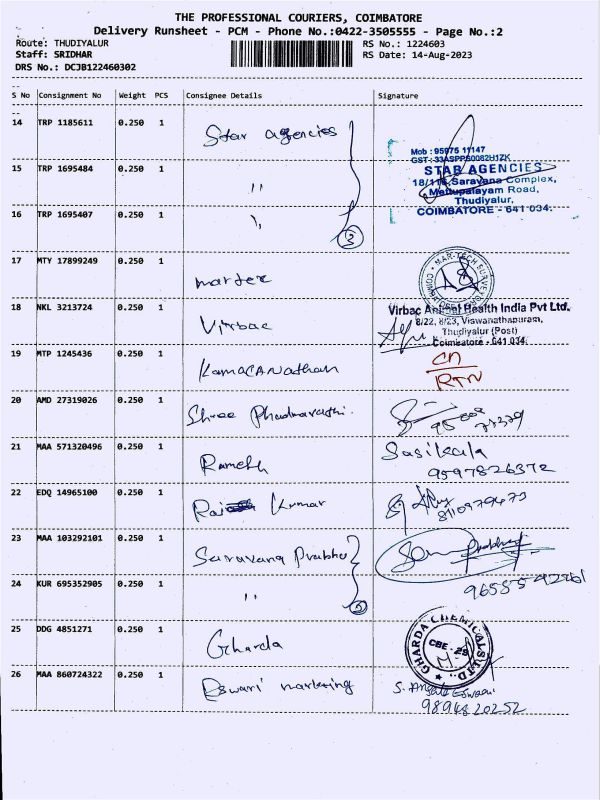 THE PROFESSIONAL COURIERS, COIMBATORE
Delivery Runsheet - PCM - Phone No.:0422-3505555 - Page No.:2
Route: THUDIYALUR RS No.: 1224603
Staff: SRIDHAR RS Date: 14-Aug-2023
DRS No.: DCJB122460302
S No Consignment No Weight PCS Consignee Details Signature
14 TRP 1185611 0.250 1 Star agencies
Mob : 95975 11147
GST : 33ASPPS0082H1ZK
STAR AGENCIES
Saravana Complex,
Mettupalayam Road,
Thudiyalur,
COIMBATORE - 641 034.
15 TRP 1695484 0.250 1 "
16 TRP 1695407 0.250 1 "
3
17 MTY 17899249 0.250 1 martex
MAR-TECH SURVEYOR
18 NKL 3213724 0.250 1 Virbac
Virbac Animal Health India Pvt Ltd.
8/22, 8/23, Viswanathapuram,
Thudiyalur (Post)
Coimbatore - 641 034
19 MTP 1245436 0.250 1 Kamalanathan
RTN
20 AMD 27319026 0.250 1 Shree Phadmavathi.
21 MAA 571320496 0.250 1 Ramesh Sasikala
9597826372
22 EDQ 14965100 0.250 1 Raj Kumar
8110979473
23 MAA 103292101 0.250 1 Saravana Prabhu
24 KUR 695352905 0.250 1 "
25 DDG 4851271 0.250 1 Gharda
GHARDA CHEMICALS LTD.,
CBE - 29
26 MAA 860724322 0.250 1 Eswari marketing
9894820252